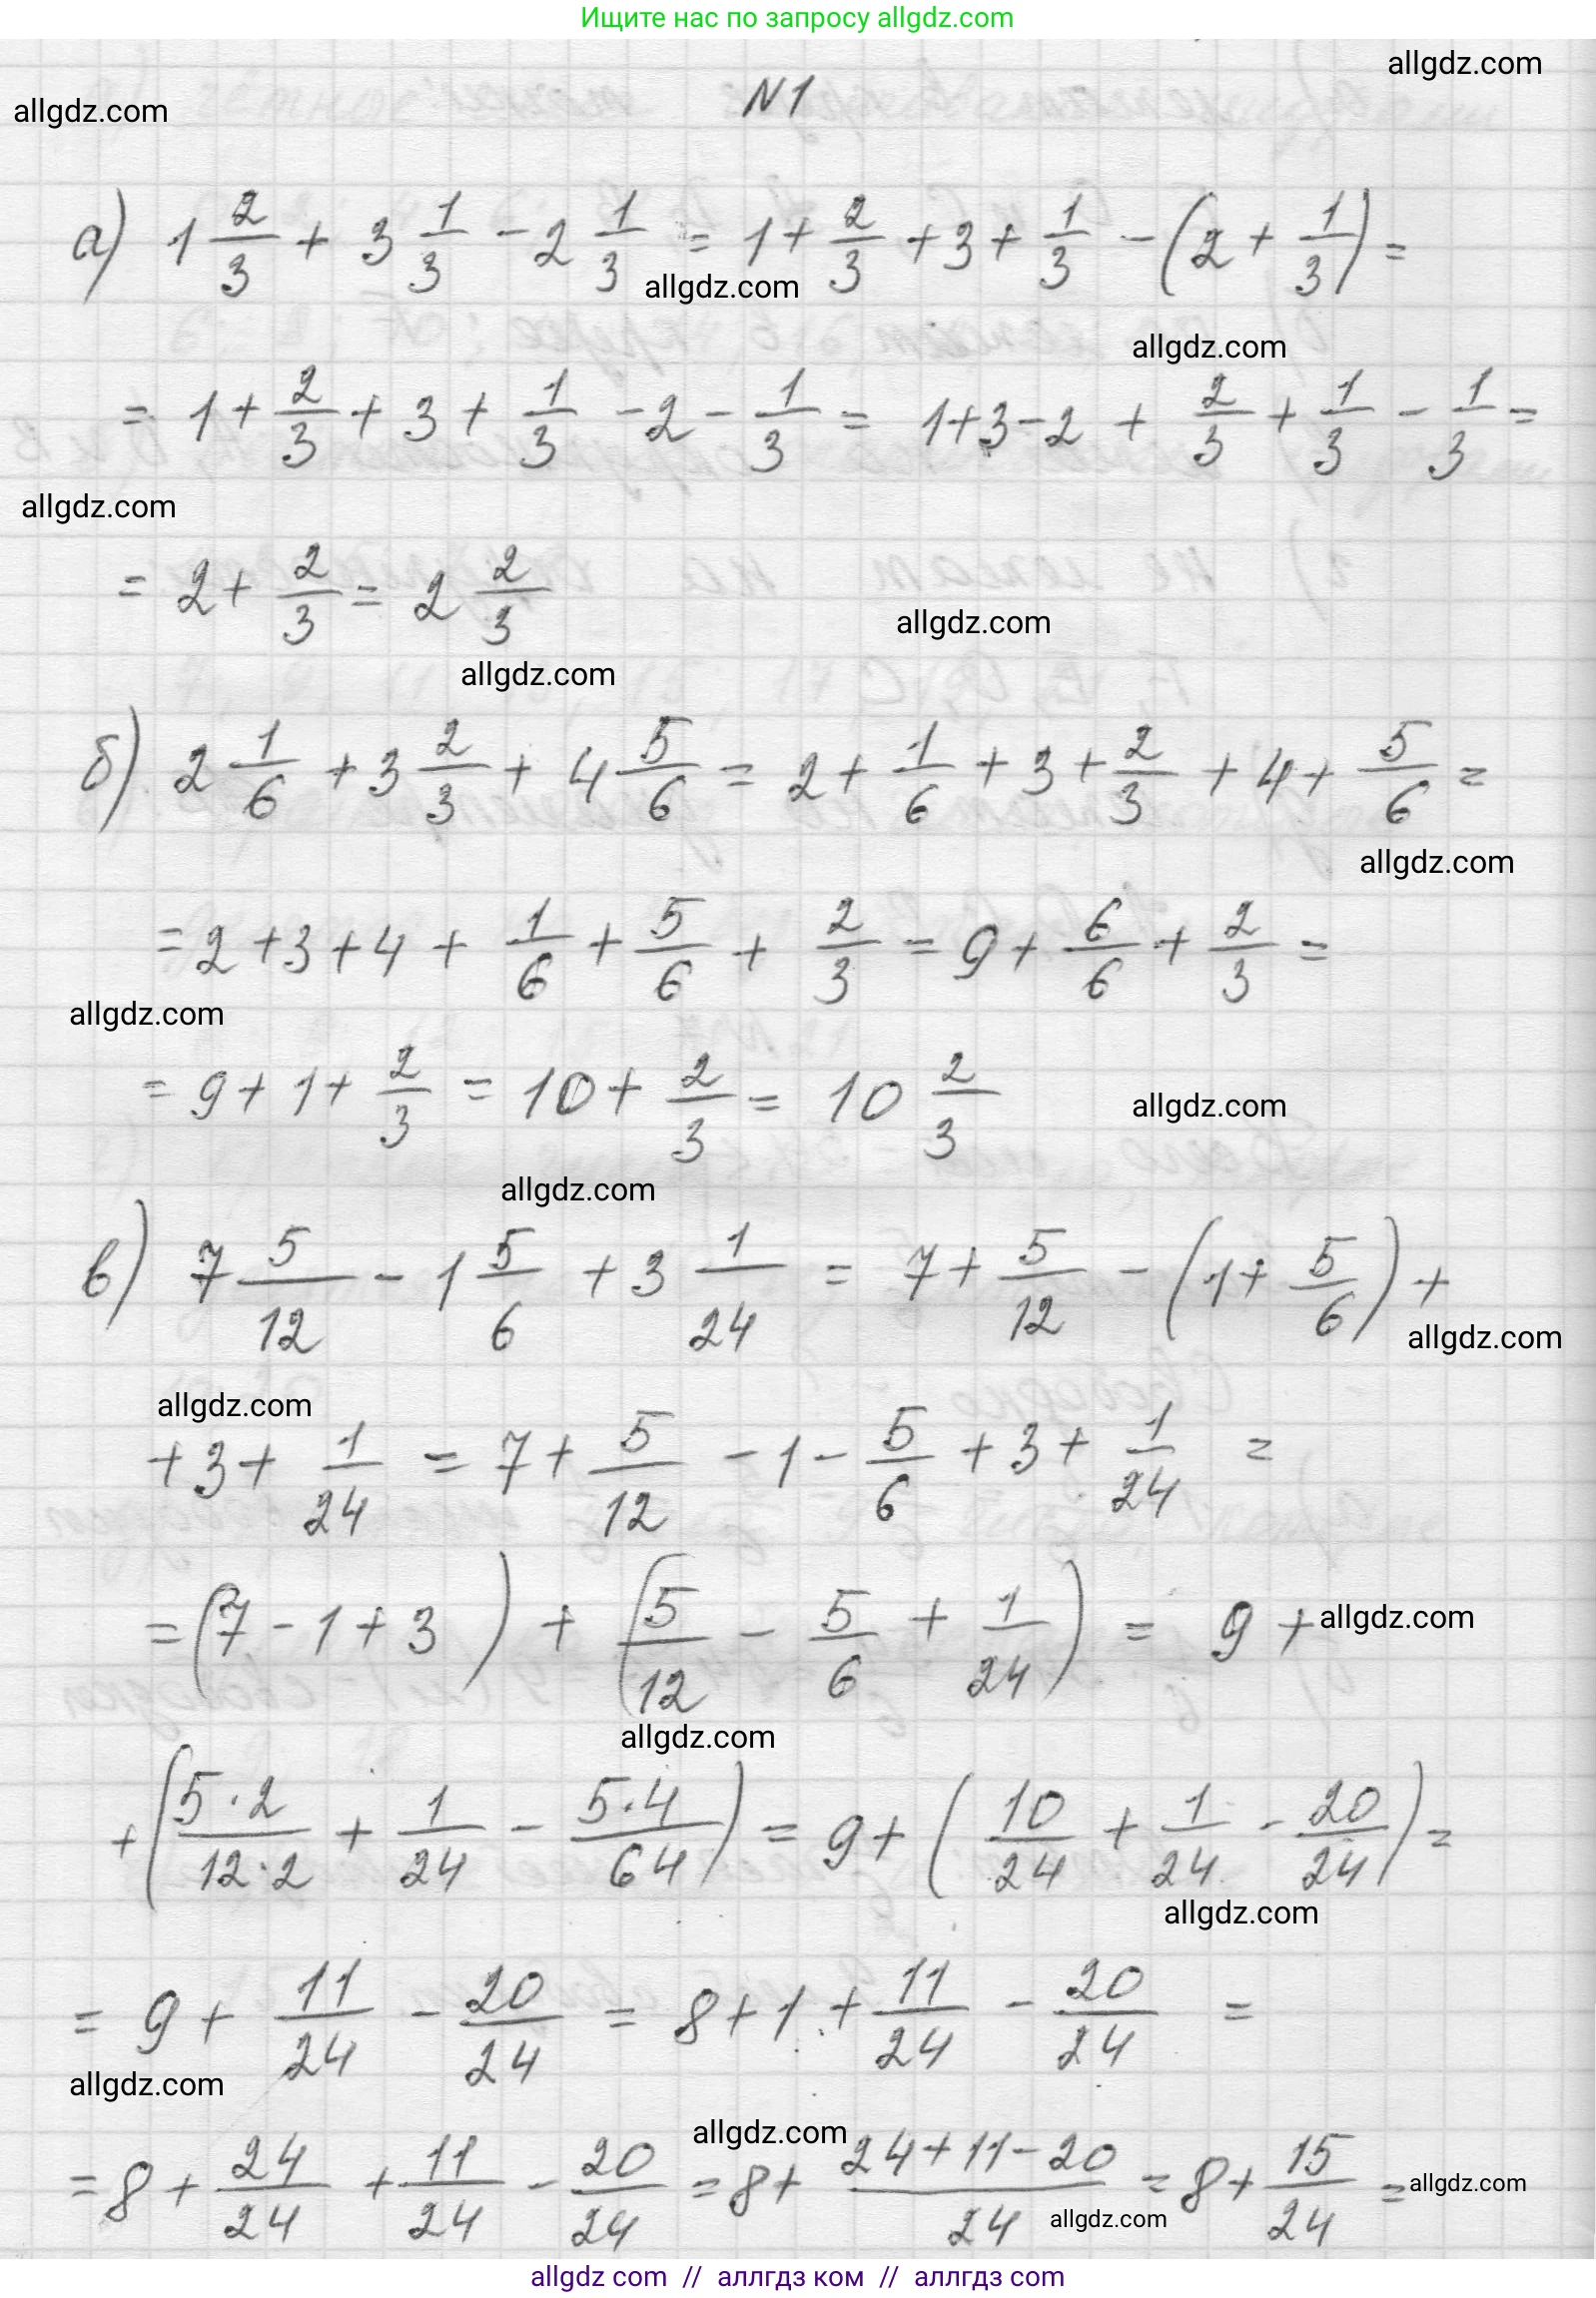 Ищите нас по запросу allgdz.com
allgdz.com
allgdz.com
N1
а) 1 2/3 + 3 1/3 - 2 1/3 = 1 + 2/3 + 3 + 1/3 - (2 + 1/3) =
allgdz.com
allgdz.com
= 1 + 2/3 + 3 + 1/3 - 2 - 1/3 = 1+3-2 + 2/3 + 1/3 - 1/3 =
allgdz.com
= 2 + 2/3 = 2 2/3
allgdz.com
allgdz.com
б) 2 1/6 + 3 2/3 + 4 5/6 = 2 + 1/6 + 3 + 2/3 + 4 + 5/6 =
allgdz.com
= 2 + 3 + 4 + 1/6 + 5/6 + 2/3 = 9 + 6/6 + 2/3 =
allgdz.com
= 9 + 1 + 2/3 = 10 + 2/3 = 10 2/3
allgdz.com
allgdz.com
в) 7 5/12 - 1 5/6 + 3 1/24 = 7 + 5/12 - (1 + 5/6) +
allgdz.com
allgdz.com
+ 3 + 1/24 = 7 + 5/12 - 1 - 5/6 + 3 + 1/24 =
= (7 - 1 + 3) + (5/12 - 5/6 + 1/24) = 9 + allgdz.com
allgdz.com
+ (5·2/12·2 + 1/24 - 5·4/64) = 9 + (10/24 + 1/24 - 20/24) =
allgdz.com
= 9 + 11/24 - 20/24 = 8 + 1 + 11/24 - 20/24 =
allgdz.com
allgdz.com
= 8 + 24/24 + 11/24 - 20/24 = 8 + 24+11-20/24 = 8 + 15/24 = allgdz.com
allgdz.com
allgdz com // аллгдз ком // аллгдз com